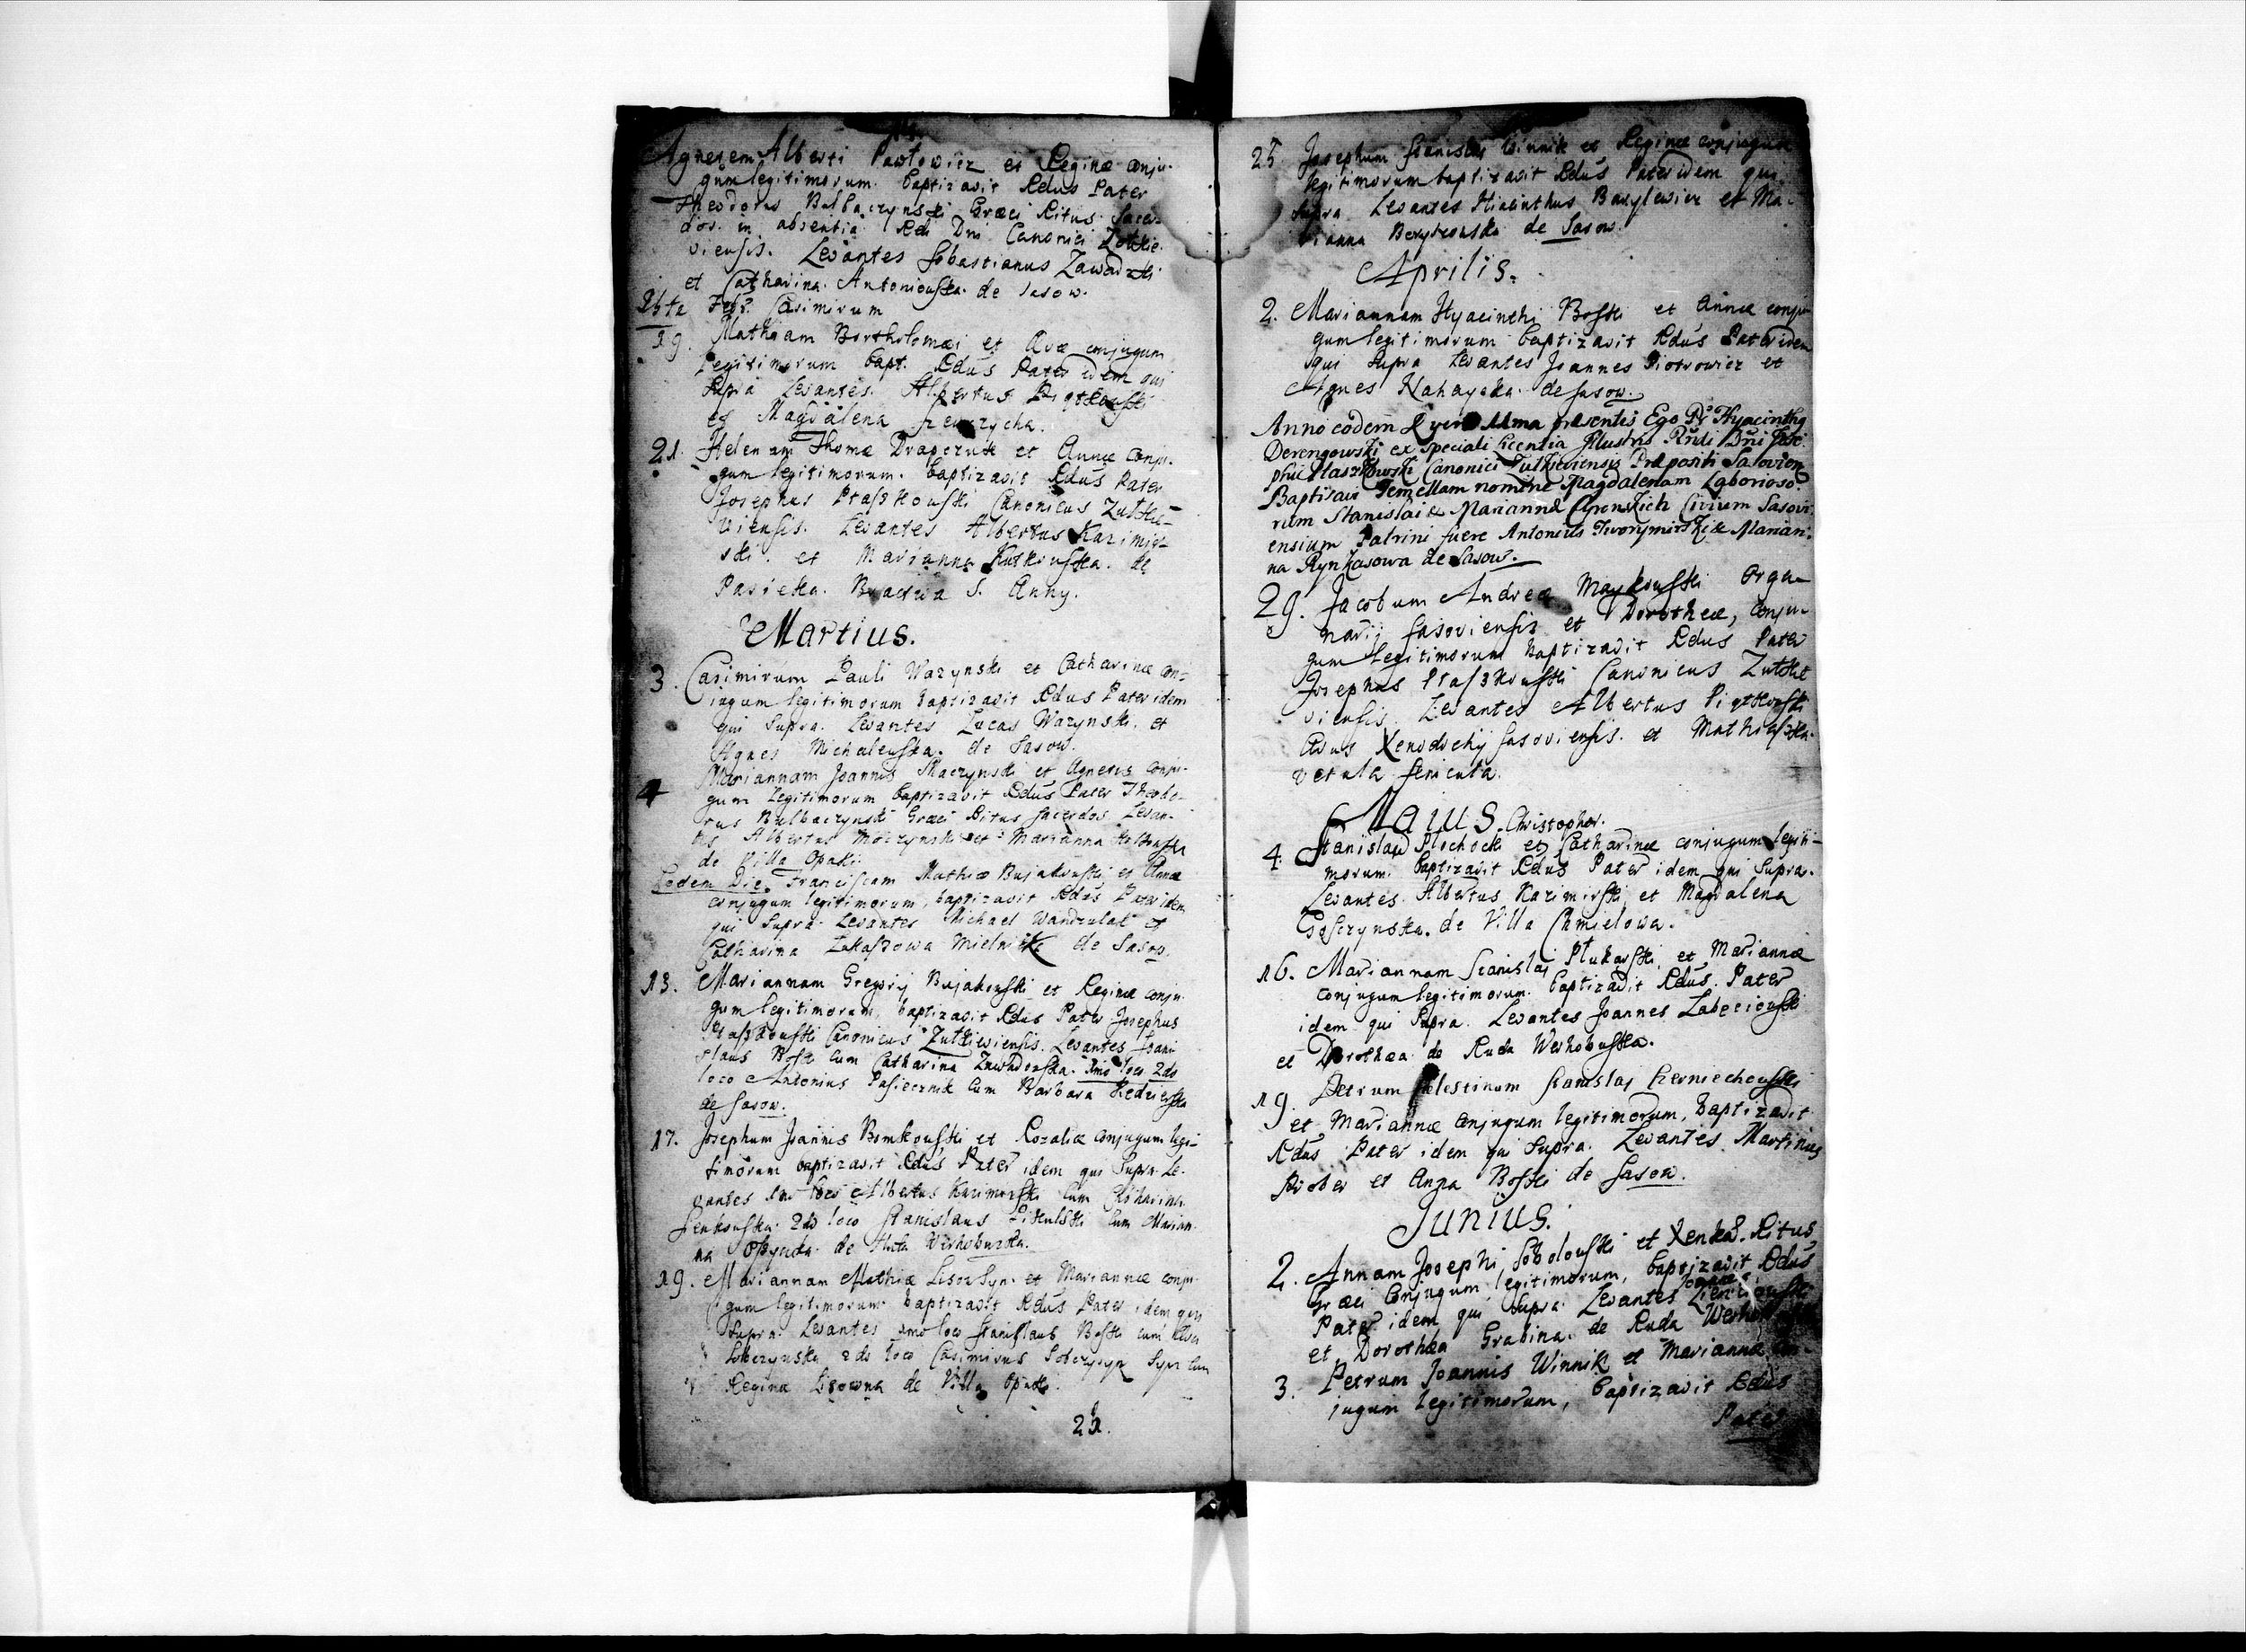 Agnetem Alberti Pawłowicz et Reginæ conju-
gum legitimorum. baptizavit Rdus Pater
Theodorus Bulbaczynski Græci Ritus Sacer-
dos. in absentia Rdi Dni Canonici Żółkie-
viensis. Levantes Sebastianus Zawadzki
et Catharina Antoniowska de Sasow.
Febr. Casimirum
19. Mathiam Bartholomæi et Evæ conjugum
legitimorum bapt. Rdus Pater idem qui
supra Levantes. Albertus Piątkowski
et Magdalena
21. Helenam Thomæ Drapczuk et Annæ conju-
gum legitimorum. baptizavit Rdus Pater
Josephus Ptaszkowski Canonicus Zułkie-
viensis. Levantes Albertus Kazimir-
ski et Marianna Kutkowska de
Pasieka. Bractwa S. Anny.
Martius.
3. Casimirum Pauli Wazynski et Catharinæ con-
jugum legitimorum baptizavit Rdus Pater idem
qui supra. Levantes Lucas Wazynski et
Agnes Michalewska. de Sasow.
4 Mariannam Joannis Skaczynski et Agnetis conju-
gum legitimorum baptizavit Rdus Pater Theodo-
rus Bulbaczynski Græci Ritus Sacerdos Levan-
tes Albertus Moczynski et Marianna
de Villa Opaki.
Eodem Die. Franciscam Mathiæ Bujakowski et Annæ
conjugum legitimorum, baptizavit Rdus Pater idem
qui supra. Levantes Michael Wandzulak et
Catharina Łukaszowa Mielnik de Sasow.
13. Mariannam Gregorij Bujakowski et Reginæ conju-
gum legitimorum, baptizavit Rdus Pater Josephus
Ptaszkowski Canonicus Zułkiewiensis. Levantes Stani-
slaus Boski cum Catharina Zawadowska. 1mo loco 2do
loco Antonius Pasiecznik cum Barbara Kedzierska
de Sasow.
17. Josephum Joannis Bomkowski et Rozaliæ conjugum legi-
timorum baptizavit Rdus Pater idem qui supra Le-
vantes 1mo loco Albertus Kazimirski cum Catharina
Senkowska 2do loco Stanislaus Pikulski cum Marian-
na de Huta Werhobuska.
19. Mariannam Mathiæ Lisow Syn. et Mariannæ conju-
gum legitimorum baptizavit Rdus Pater idem qui
supra. Levantes 1mo loco Stanislaus Boski cum
2do loco Casimirus Syn cum
Regina Lisowna de Villa Opaki.
25.
25 Josephum Stanislai Winnik et Reginæ conjugum
legitimorum baptizavit Rdus Pater idem qui
supra Levantes Hiacinthus Bazylewicz et Ma-
rianna de Sasow.
Aprilis.
2. Mariannam Hyacinthi Boski et Annæ conju-
gum legitimorum baptizavit Rdus Pater idem
qui supra Levantes Joannes Piotrowicz et
Agnes Nahayska de Sasow.
Anno eodem præsentis Ego Pr Hyacinthq
Derengowski ex speciali licentia Illustris Rndi Dni Jose-
phi Ptaszkowski Canonici Zułkieviensis Præpositi Sasovien
Baptisavi Gemellam nomine Magdalenam Laborioso-
rum Stanislai & Mariannæ Civium Sasovi-
ensium Patrini fuere Antonius Tworymirski & Marian-
na Rynkasowa de Sasow.
29. Jacobum Andreæ Maykowski Orga-
narij Sasoviensis et Dorotheæ, conju-
gum legitimorum baptizavit Rdus Pater
Josephus Ptaszkowski Canonicus Zułkie
viensis. Levantes Albertus Piątkowski
Avus Xenodochij Sasoviensis. et Mathiaszka
vetula
Maius. Christophor.
4. Stanislaw Plochocki et Catharinæ conjugum legiti-
morum. baptizavit Rdus Pater idem qui supra.
Levantes Albertus Kazimirski et Magdalena
Goszczynska. de Villa Chmielowa.
16. Mariannam Stanislai Plukarski et Mariannæ
conjugum legitimorum. baptizavit Rdus. Pater
idem qui supra. Levantes Joannes Labeciowski
et Dorothea de Ruda Werhobuska.
19. Petrum Celestinum Stanislai Czerniechowski
et Mariannæ conjugum legitimorum, baptizavit
Rdus Pater idem qui supra. Levantes Martinus
Prober et Anna Boski de Sasow.
Junius.
2. Annam Josephi Sobolowski et Xenka. Ritus
Græci conjugum legitimorum, baptizavit Rdus
Pater idem qui supra. Levantes Joannes
et Dorothea Grabina. de Ruda
3. Petrum Joannis Winnik et Mariannæ con-
jugum legitimorum, baptizavit Rdus
Pater